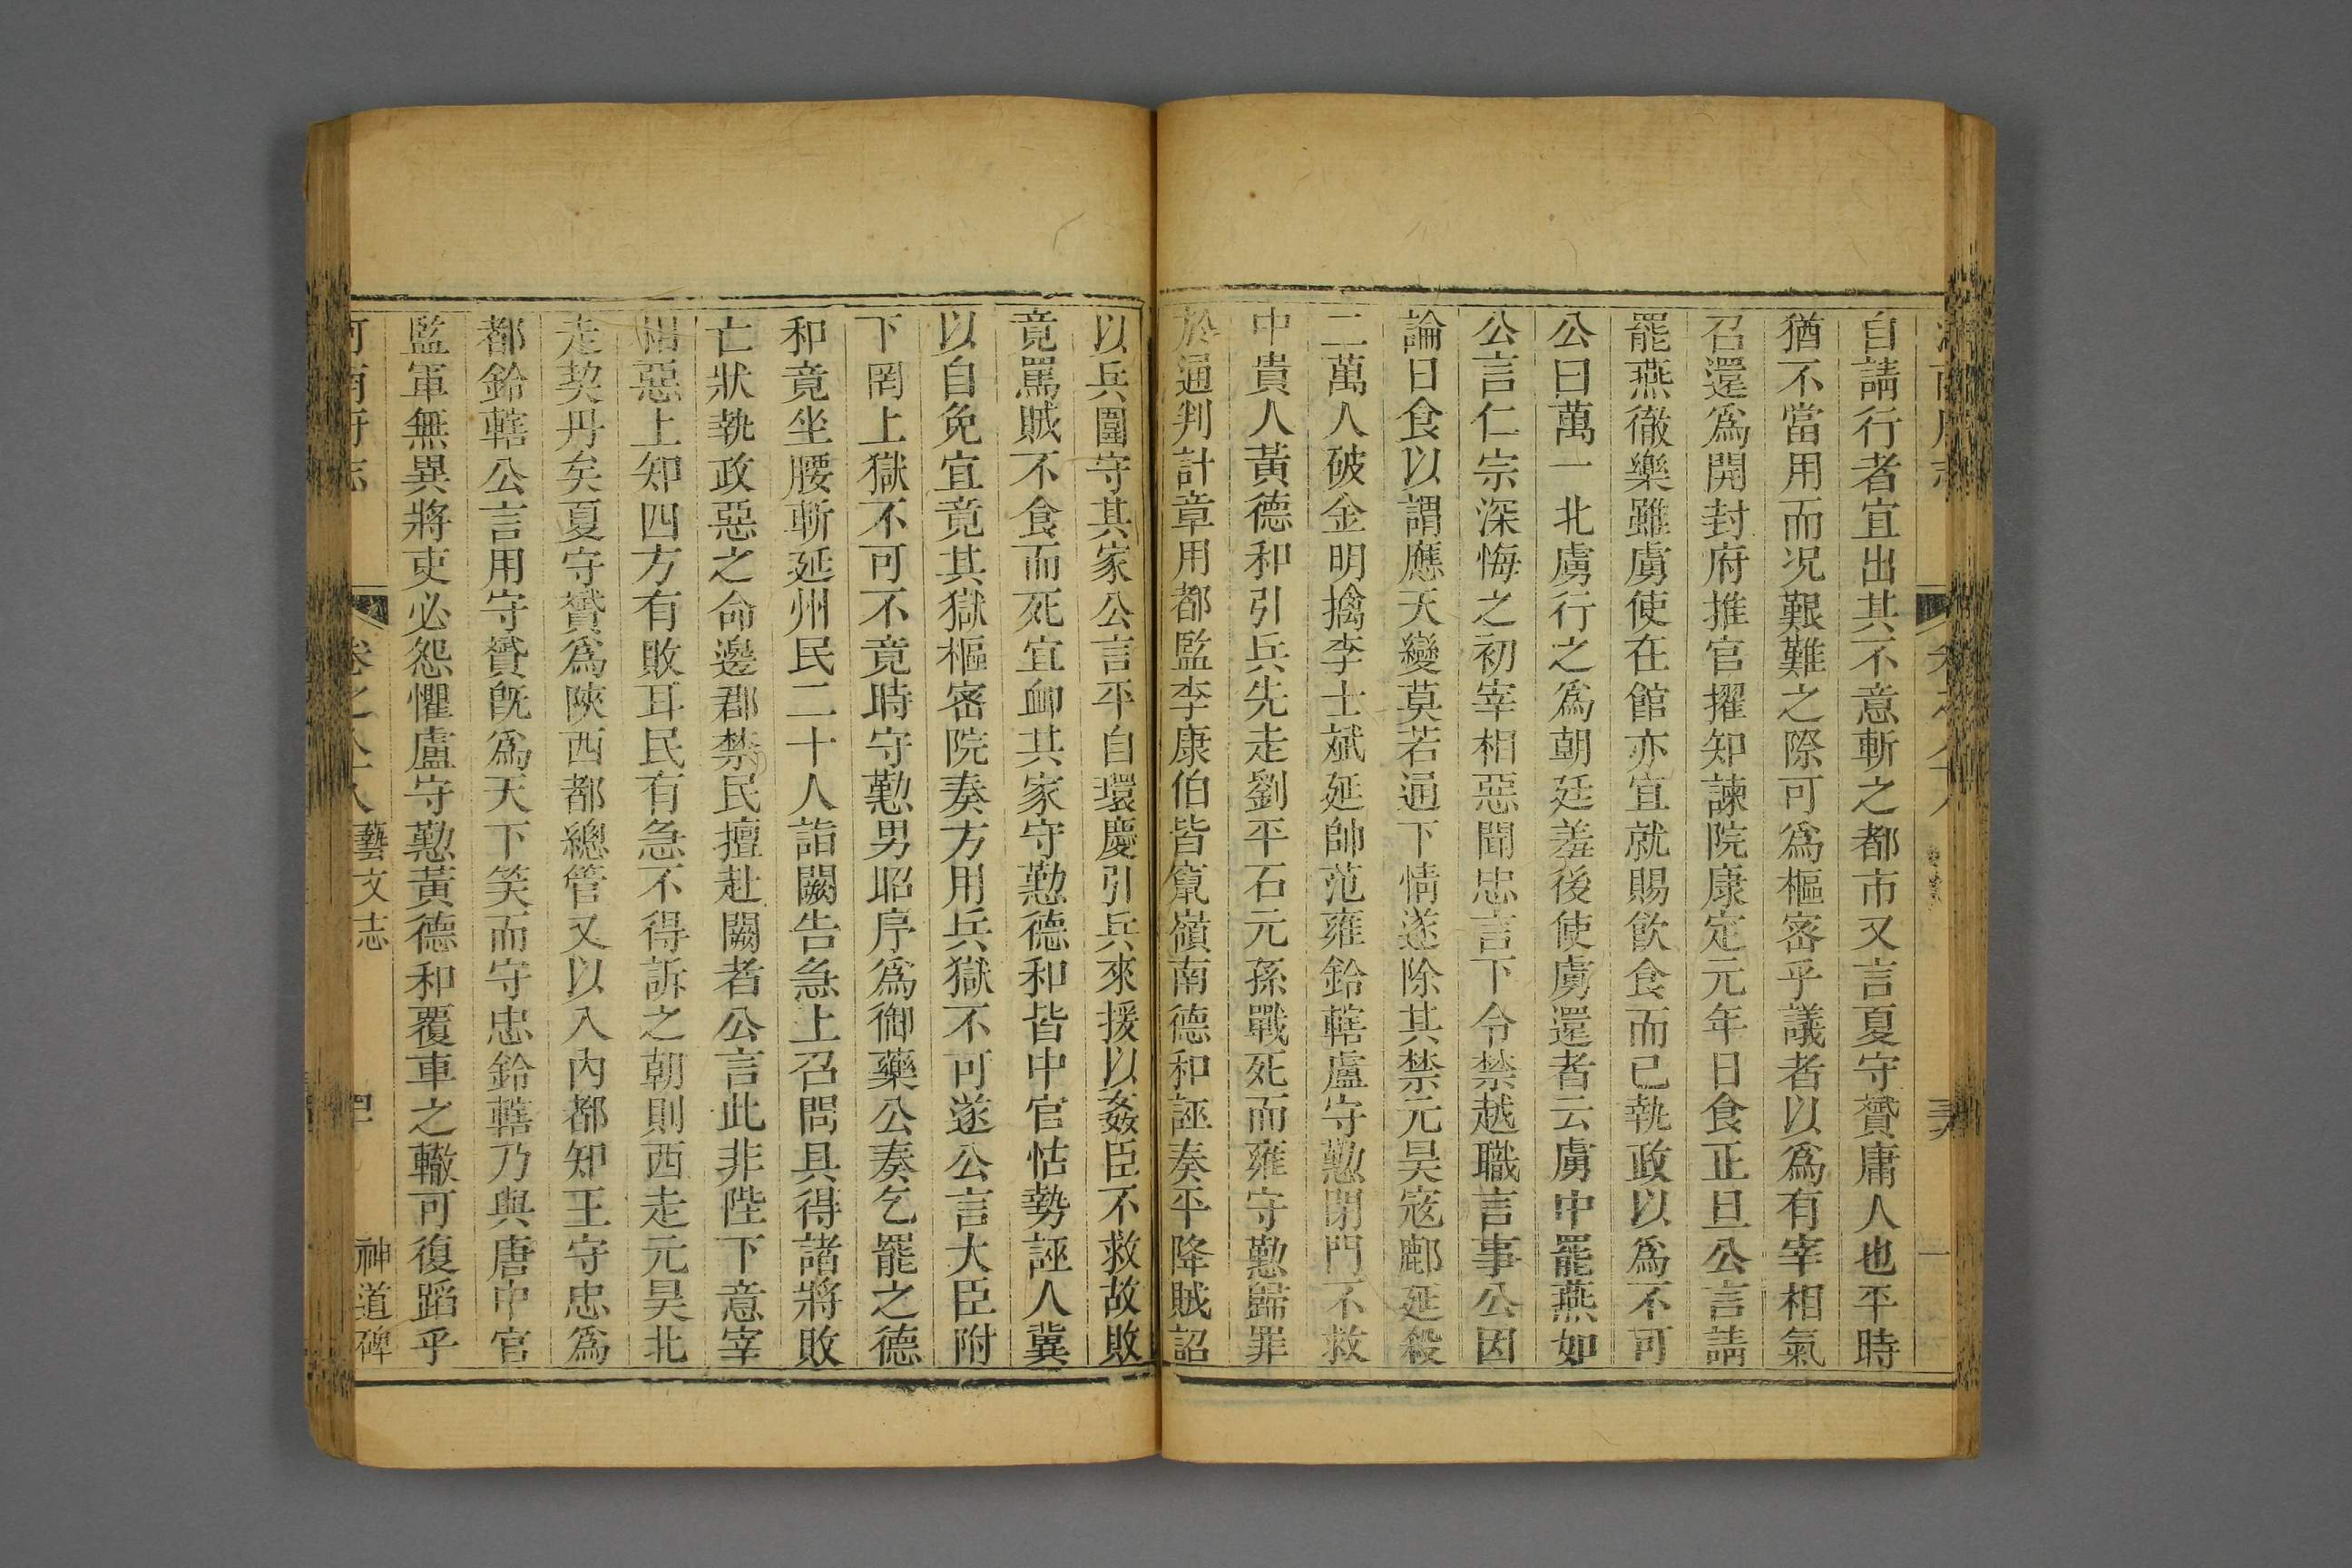 自請行者宜出其不意斬之都市又言夏守贇庸人也平時
猶不當用而况艱難之際可爲樞密乎議者以爲有宰相氣
召還爲開封府推官擢知諫院康定元年日食正旦公言請
罷燕徹樂雖虜使在館亦宜就賜飲食而已執政以爲不可
公曰萬一北虜行之爲朝廷羞後使虜還者云虜中罷燕如
公言仁宗深悔之初宰相惡聞忠言下令禁越職言事公因
論日食以謂應天變莫若通下情遂除其禁元昊寇鄜延殺
二萬人破金明擒李士斌延帥范雍鈐轄盧守懃閉門不救
中貴人黃德和引兵先走劉平石元孫戰死而雍守懃歸罪
於通判計章用都監李康伯皆竄嶺南德和誣奏平降賊詔
以兵圍守其家公言平自環慶引兵來援以姦臣不救故敗
竟罵賊不食而死宜䘏其家守懃德和皆中官怙勢誣人冀
以自免宜竟其獄樞密院奏方用兵獄不可遂公言大臣附
下罔上獄不可不竟時守懃男昭序爲御藥公奏乞罷之德
和竟坐腰斬延州民二十人詣闕告急上召問具得諸將敗
亡狀執政惡之命邊郡禁民擅赴闕者公言此非陛下意宰
相惡上知四方有敗耳民有急不得訴之朝則西走元昊北
走契丹矣夏守贇爲陝西都總管又以入內都知王守忠爲
都鈐轄公言用守贇旣爲天下笑而守忠鈐轄乃與唐中官
監軍無異將吏必怨懼盧守懃黃德和覆車之轍可復蹈乎
河南府志 卷之八十八 藝文志 神道碑